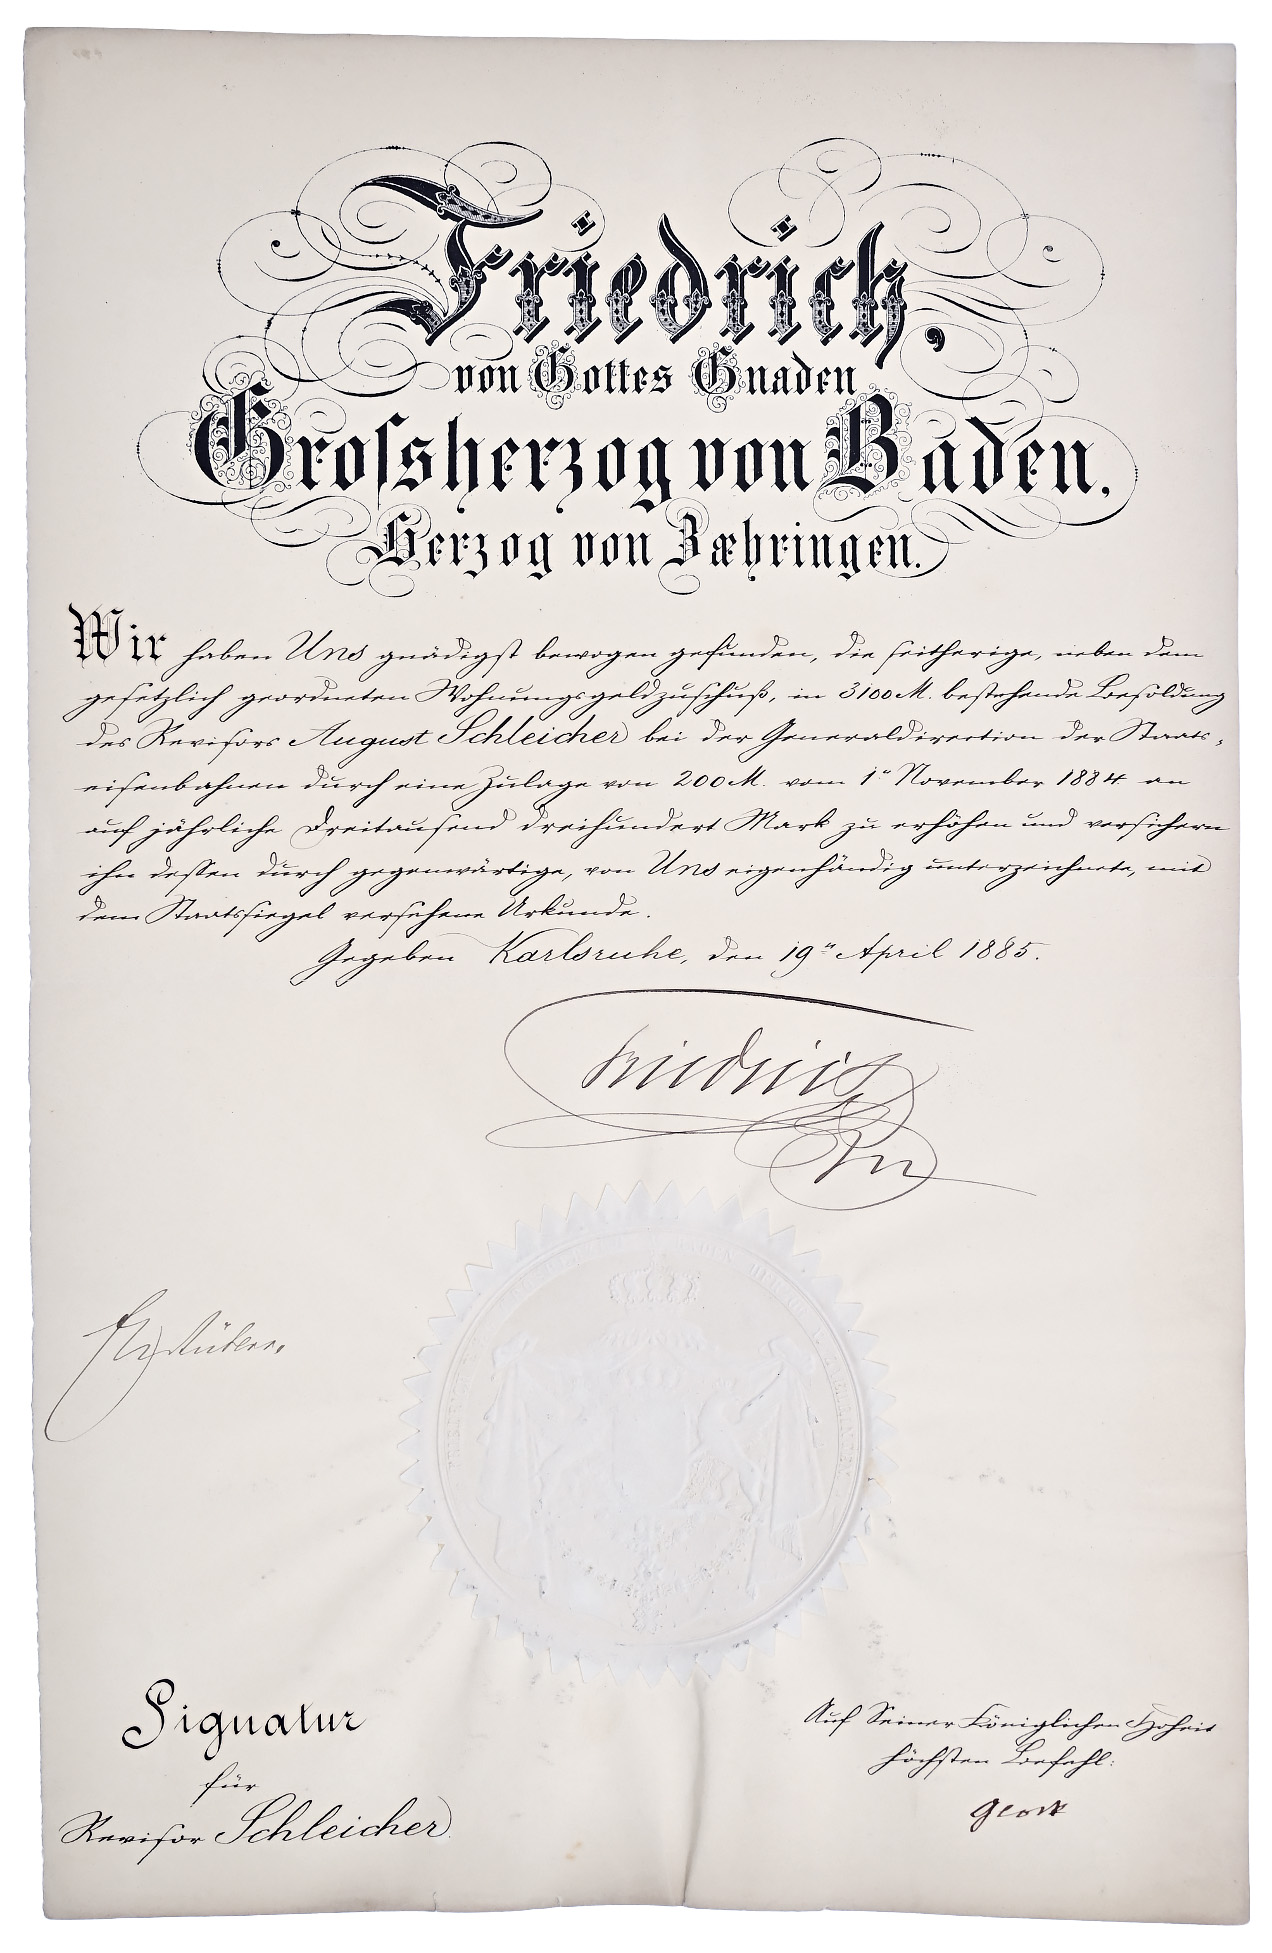 Friedrich,
von Gottes Gnaden
Grossherzog von Baden,
Herzog von Zæhringen.
Wir haben Uns gnädigst bewogen gefunden, die seitherige, neben dem
gesetzlich geordneten Wohnungsgeldzuschuß, in 3100 M. bestehende Besoldung
des Revisors August Schleicher bei der Generaldirection der Staats-
eisenbahnen durch eine Zulage von 200 M. vom 1n November 1884 an
auf jährliche Dreitausend dreihundert Mark zu erhöhen und versichern
ihn dessen durch gegenwärtige, von Uns eigenhändig unterzeichnete, mit
dem Staatssiegel versehene Urkunde.
Gegeben Karlsruhe, den 19n April 1885.
Friedrich
Signatur
für
Revisor Schleicher.
Auf Seiner Königlichen Hoheit
höchsten Befehl: